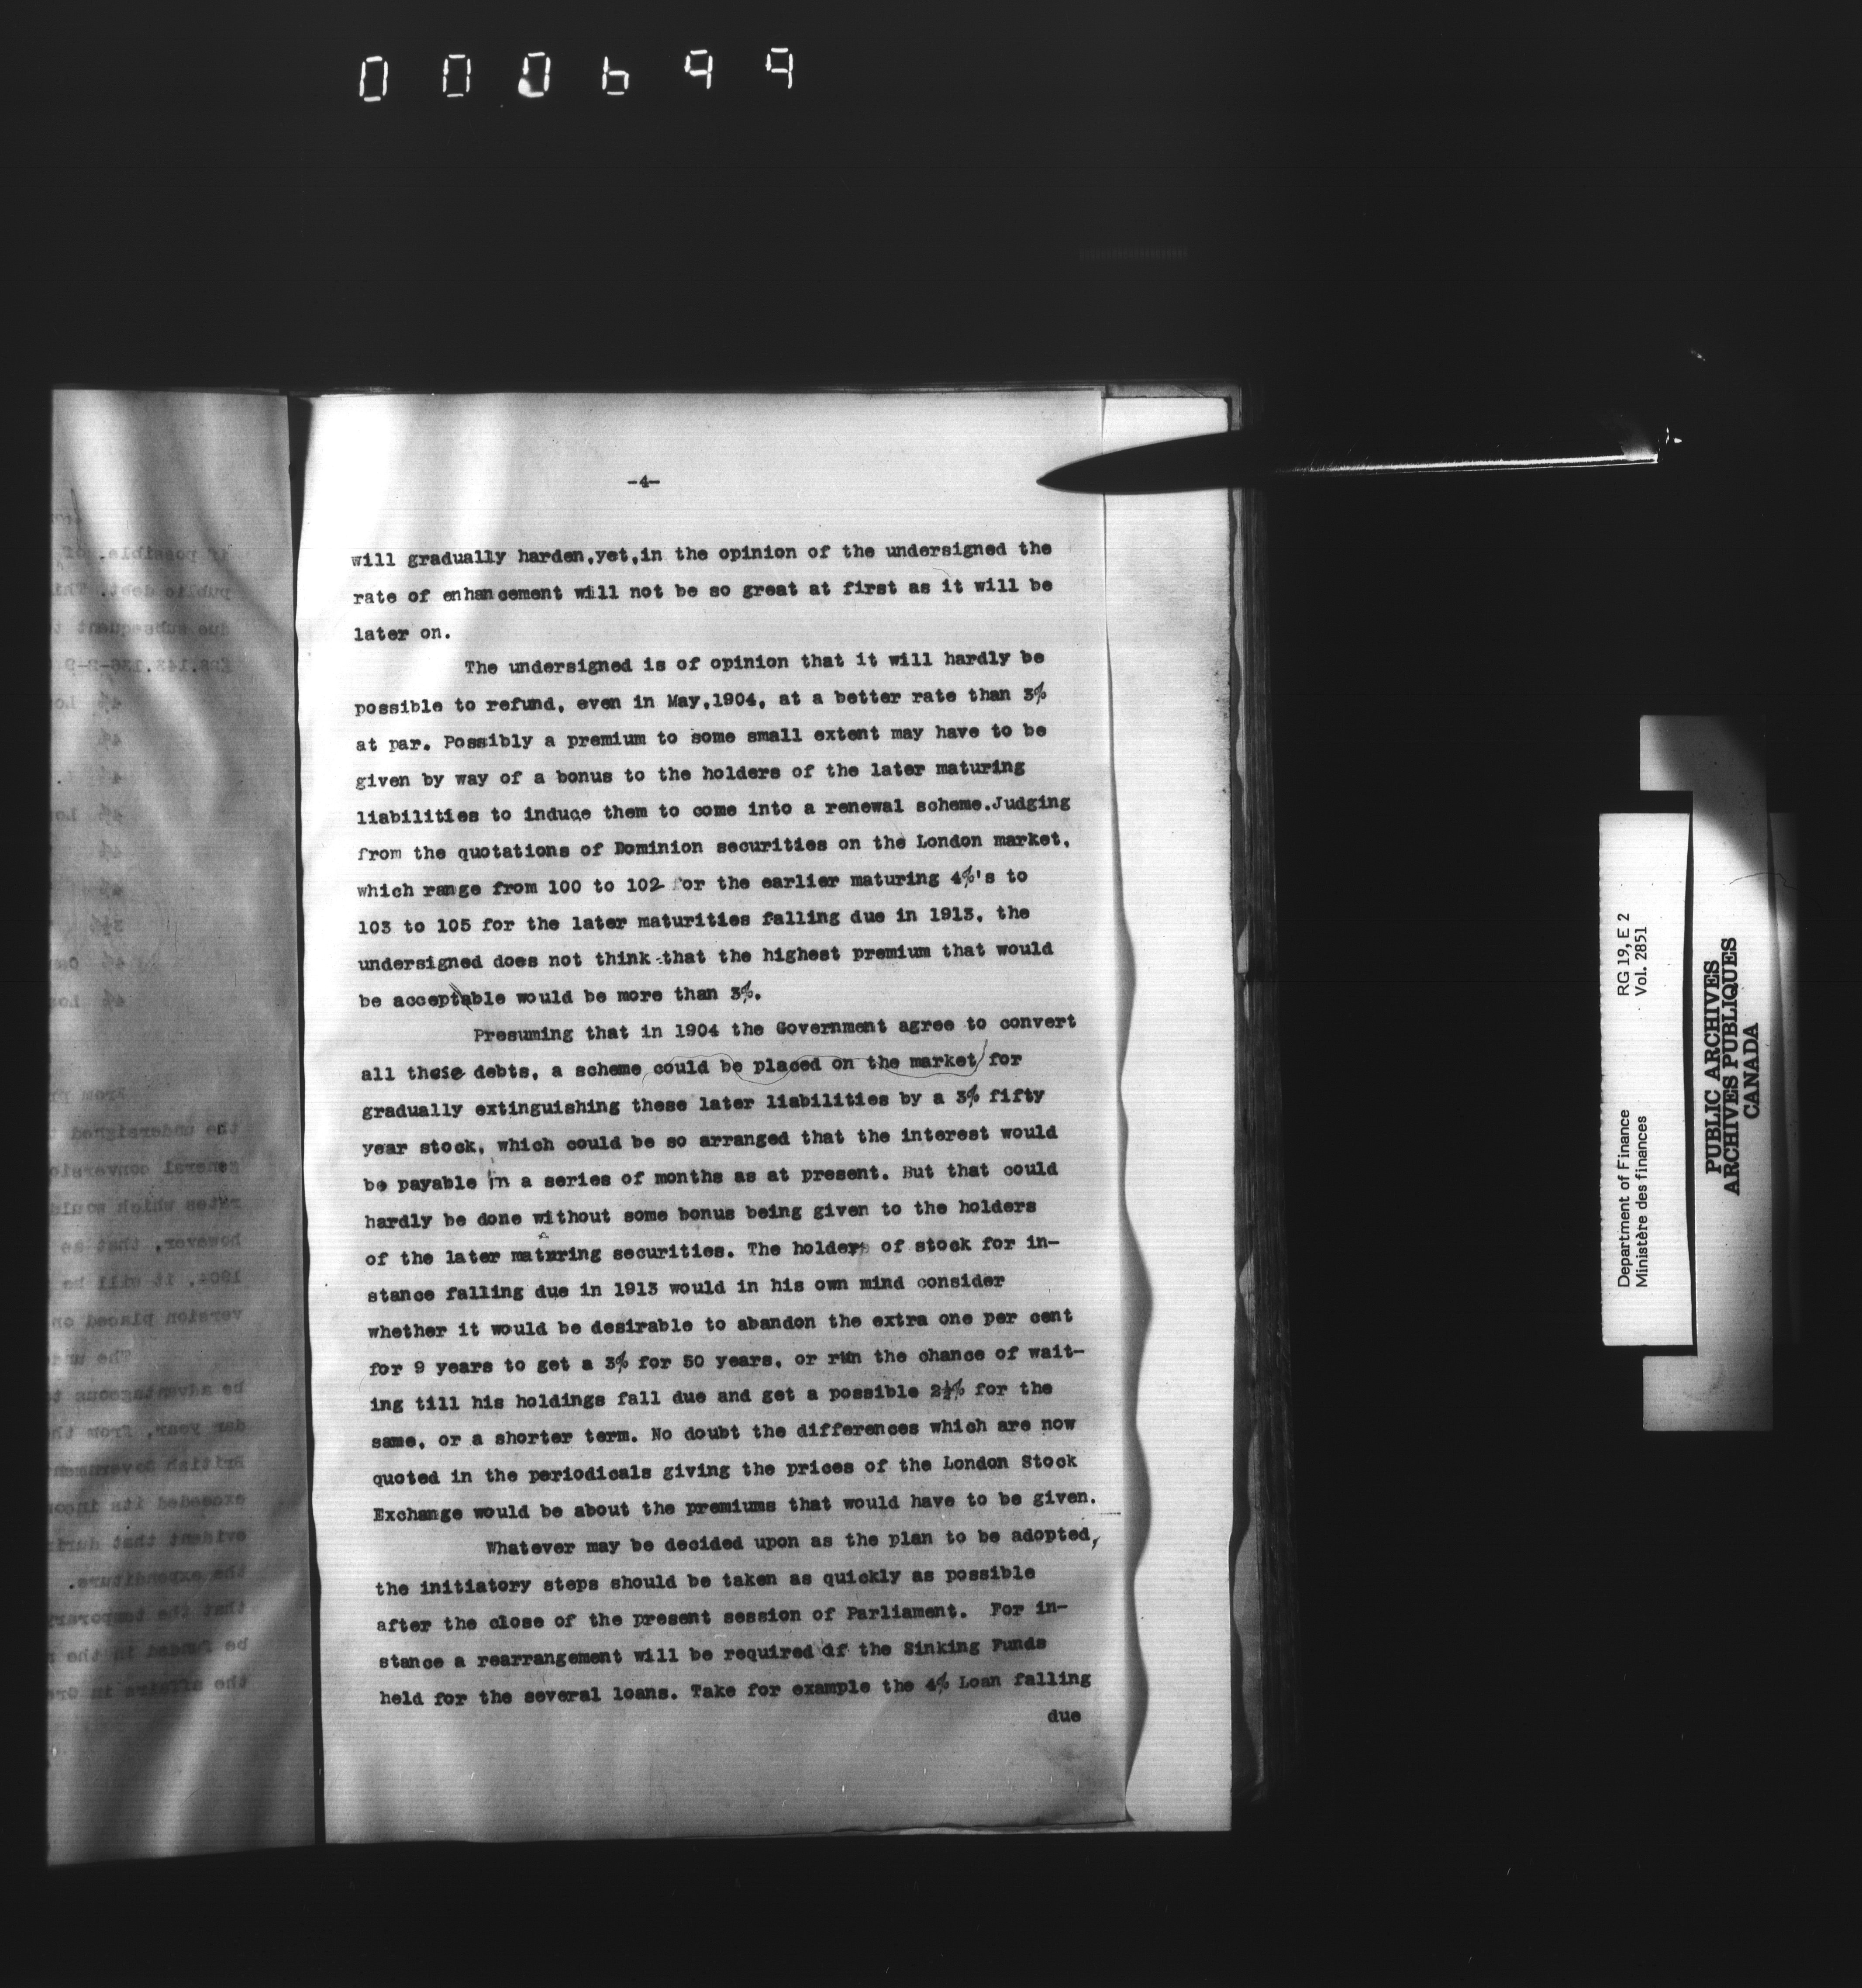 000699
-4-
will gradually harden,yet,in the opinion of the undersigned the
rate of enhancement will not be so great at first as it will be
later on.
The undersigned is of opinion that it will hardly be
possible to refund, even in May,1904, at a better rate than 3%
at par. Possibly a premium to some small extent may have to be
given by way of a bonus to the holders of the later maturing
liabilities to induce them to come into a renewal scheme.Judging
from the quotations of Dominion securities on the London market,
which range from 100 to 102 for the earlier maturing 4%'s to
103 to 105 for the later maturities falling due in 1913, the
undersigned does not think that the highest premium that would
be acceptable would be more than 3%.
Presuming that in 1904 the Government agree to convert
all these debts, a scheme could be placed on the market for
gradually extinguishing these later liabilities by a 3% fifty
year stock, which could be so arranged that the interest would
be payable in a series of months as at present. But that could
hardly be done without some bonus being given to the holders
of the later maturing securities. The holders of stock for in-
stance falling due in 1913 would in his own mind consider
whether it would be desirable to abandon the extra one per cent
for 9 years to get a 3% for 50 years, or run the chance of wait-
ing till his holdings fall due and get a possible 2½% for the
same, or a shorter term. No doubt the differences which are now
quoted in the periodicals giving the prices of the London Stock
Exchange would be about the premiums that would have to be given.
Whatever may be decided upon as the plan to be adopted,
the initiatory steps should be taken as quickly as possible
after the close of the present session of Parliament. For in-
stance a rearrangement will be required of the Sinking Funds
held for the several loans. Take for example the 4% Loan falling
due
Department of Finance RG 19, E 2
Ministère des finances Vol. 2851
PUBLIC ARCHIVES
ARCHIVES PUBLIQUES
CANADA